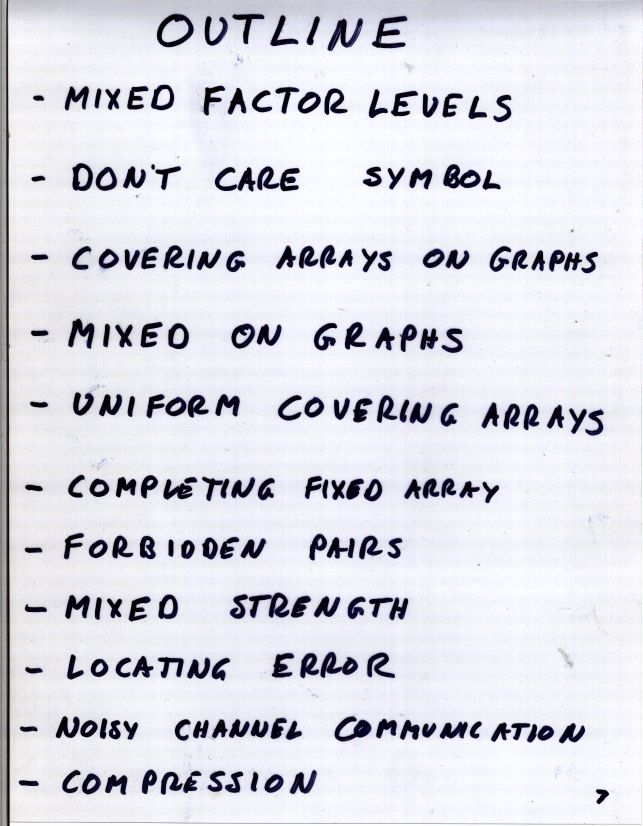 OUTLINE
- MIXED FACTOR LEVELS
- DON'T CARE SYMBOL
- COVERING ARRAYS ON GRAPHS
- MIXED ON GRAPHS
- UNIFORM COVERING ARRAYS
- COMPLETING FIXED ARRAY
- FORBIDDEN PAIRS
- MIXED STRENGTH
- LOCATING ERROR
- NOISY CHANNEL COMMUNICATION
- COMPRESSION
7